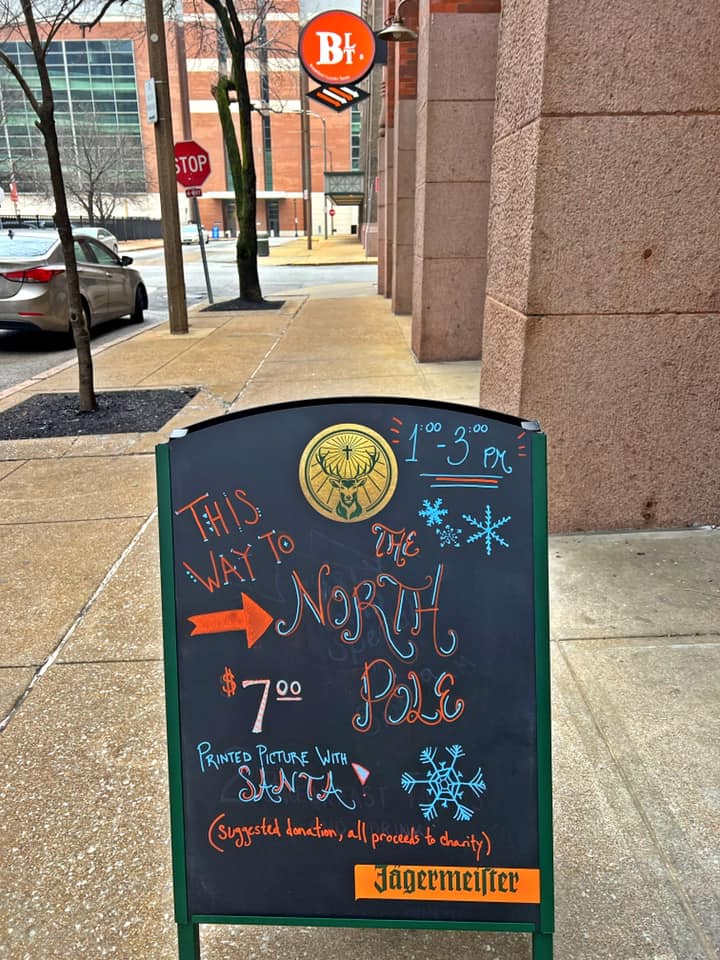 BLT
STOP
4-WAY
1:00 - 3:00 PM
THIS
WAY TO
THE
NORTH
POLE
$7.00
PRINTED PICTURE WITH
SANTA
(Suggested donation, all proceeds to charity)
Jägermeiſter